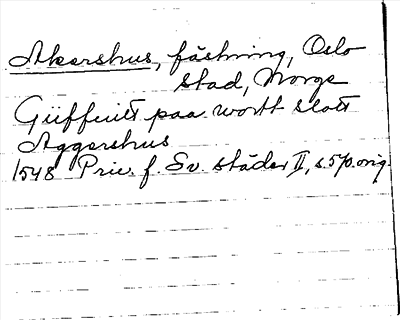 Akershus, fästning, Oslo
stad, Norge
Giiffuit paa wortt slott
Aggershus
1548 Priv. f. Sv. städer II, s. 570. orig.